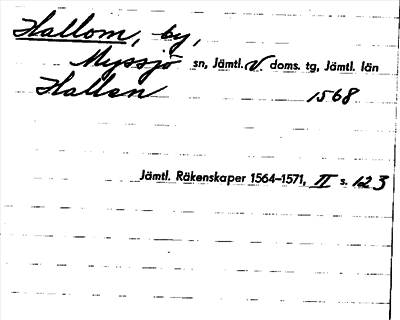 Hallom, by,
Myssjö sn, Jämtl. V. doms. tg, Jämtl. län
Hallen 1568
Jämtl. Räkenskaper 1564–1571, II s. 123